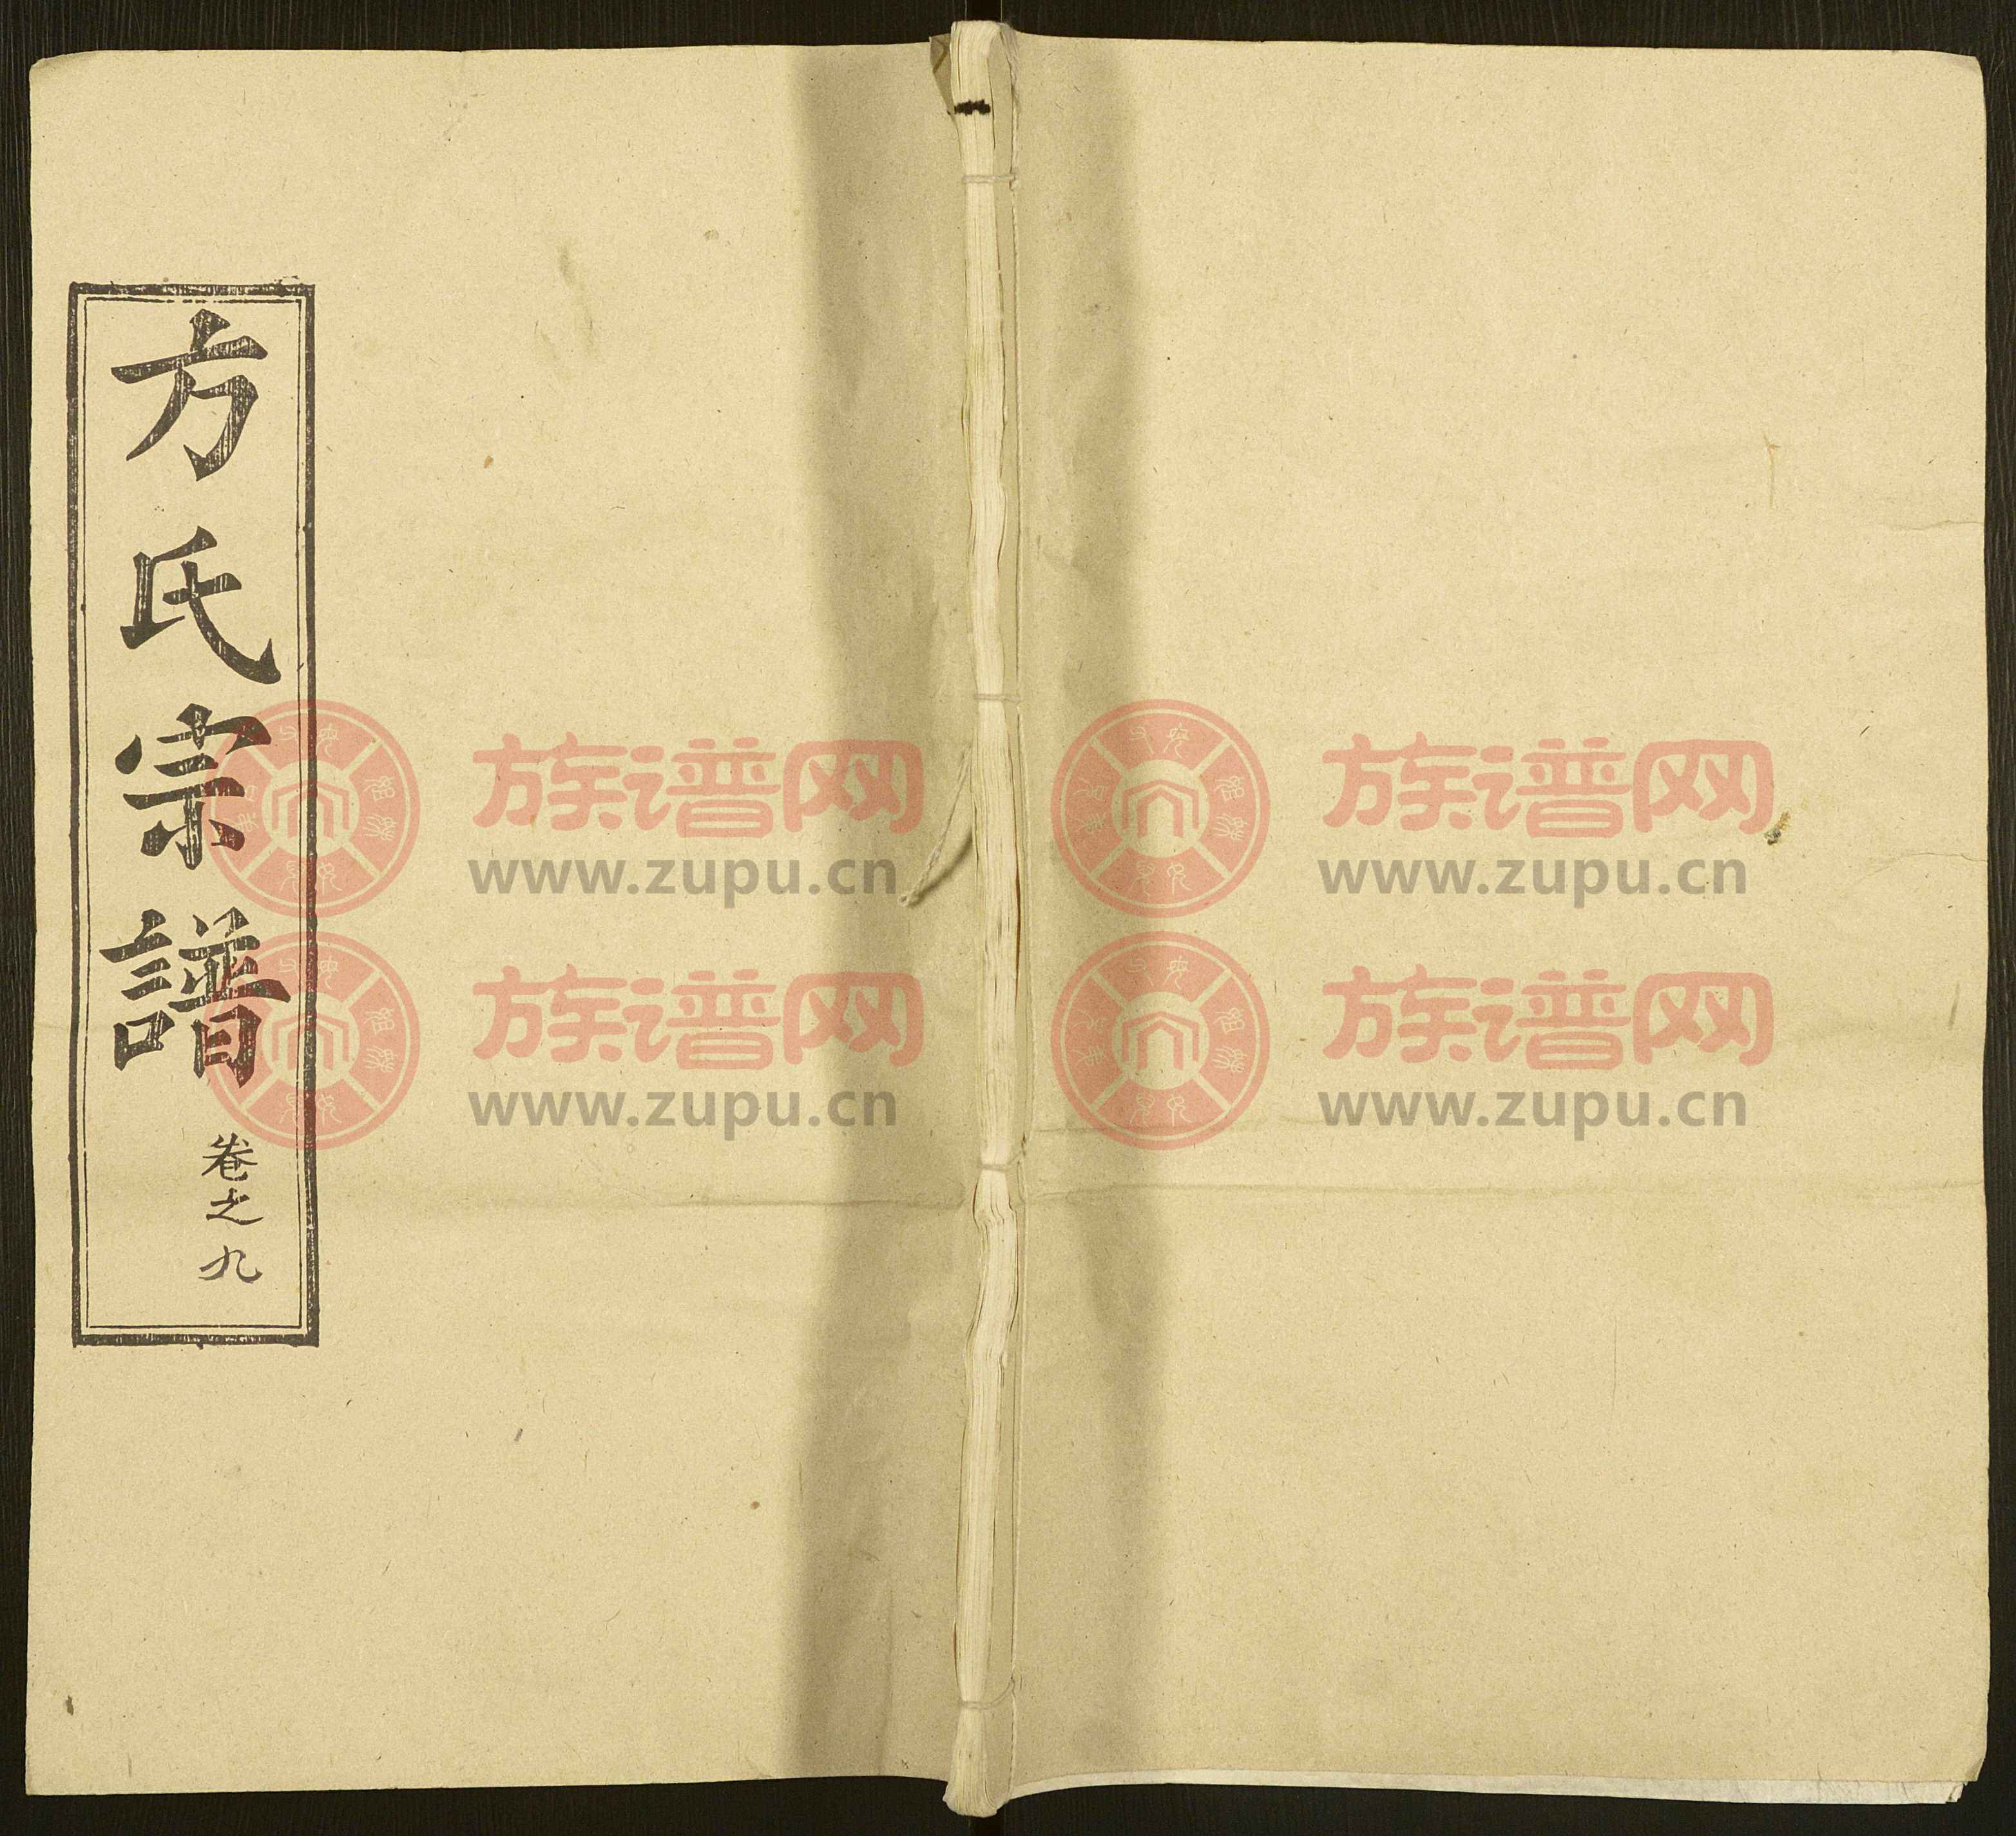 方氏宗譜
卷之九
族谱网
www.zupu.cn
族谱网
www.zupu.cn
族谱网
www.zupu.cn
族谱网
www.zupu.cn